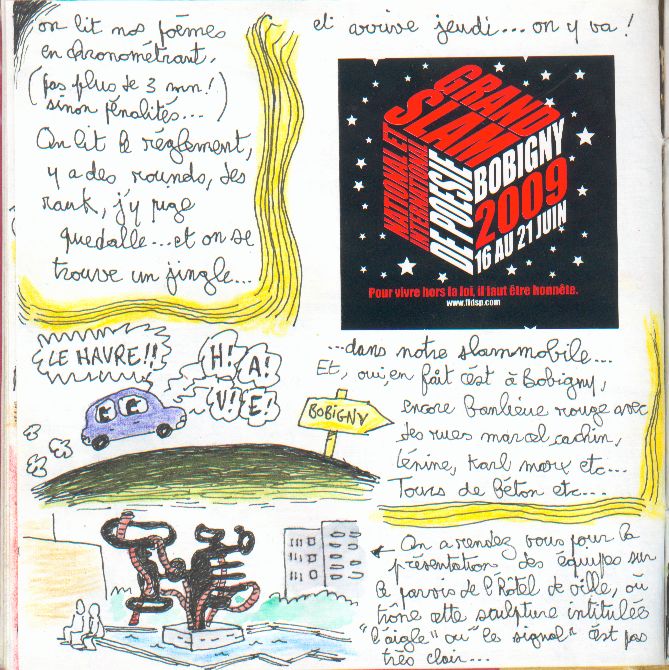 on lit nos poèmes
en chronométrant.
(pas plus de 3 mn!
sinon pénalités...)
On lit le réglement,
y a des rounds, des
rank, j'y pige
quedalle...et on se
trouve un jingle...
et arrive jeudi...on y va!
GRAND
SLAM
NATIONAL ET
INTERNATIONAL
DE POESIE
BOBIGNY
2009
16 AU 21 JUIN
Pour vivre hors la loi, il faut être honnête.
www.ffdsp.com
LE HAVRE!!
H! A!
V! E!
BOBIGNY
...dans notre slammobile...
Et, oui, en fait c'est à Bobigny,
encore banlieue rouge avec
des rues marcel cachin,
Lénine, Karl marx etc...
Tours de béton etc...
← On a rendez vous pour la
présentation des équipes sur
le parvis de l'Hôtel de ville, où
trône cette sculpture intitulée
"l'aigle" ou "le signal" c'est pas
très clair...